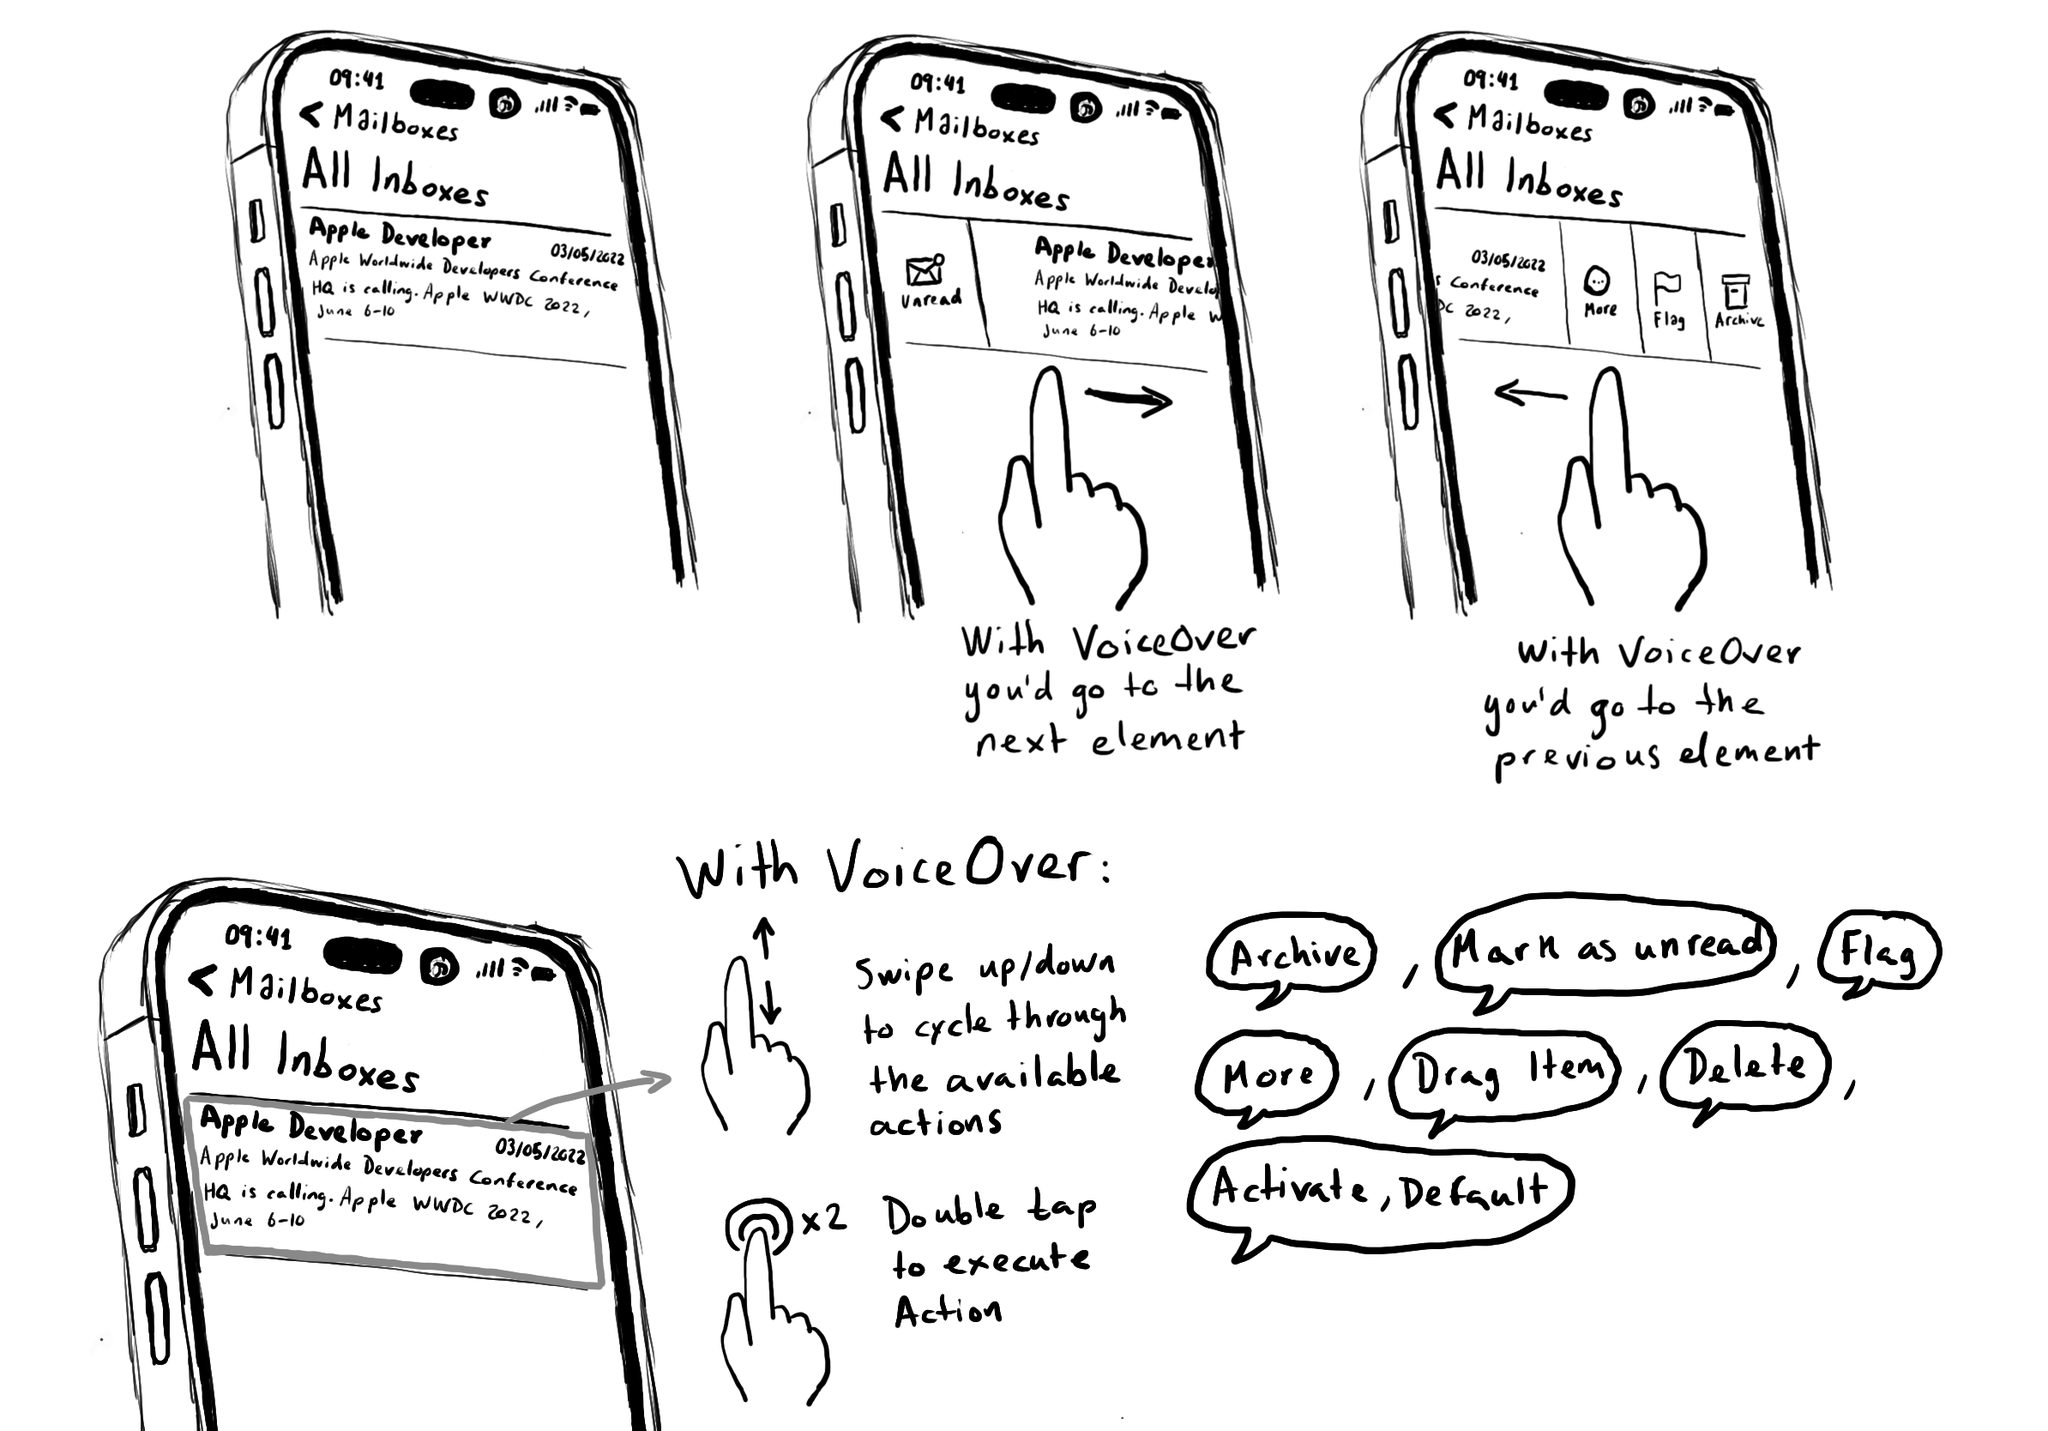 09:41
< Mailboxes
All Inboxes
Apple Developer
03/05/2022
Apple Worldwide Developers Conference
HQ is calling. Apple WWDC 2022,
June 6-10
09:41
< Mailboxes
All Inboxes
Unread
Apple Developer
Apple Worldwide Develo
HQ is calling. Apple W
June 6-10
With VoiceOver
you'd go to the
next element
09:41
< Mailboxes
All Inboxes
03/05/2022
s Conference
DC 2022,
More
Flag
Archive
With VoiceOver
you'd go to the
previous element
09:41
< Mailboxes
All Inboxes
Apple Developer
03/05/2022
Apple Worldwide Developers Conference
HQ is calling. Apple WWDC 2022,
June 6-10
With VoiceOver:
Swipe up/down
to cycle through
the available
actions
x2
Double tap
to execute
Action
Archive, Mark as unread, Flag
More, Drag Item, Delete,
Activate, Default